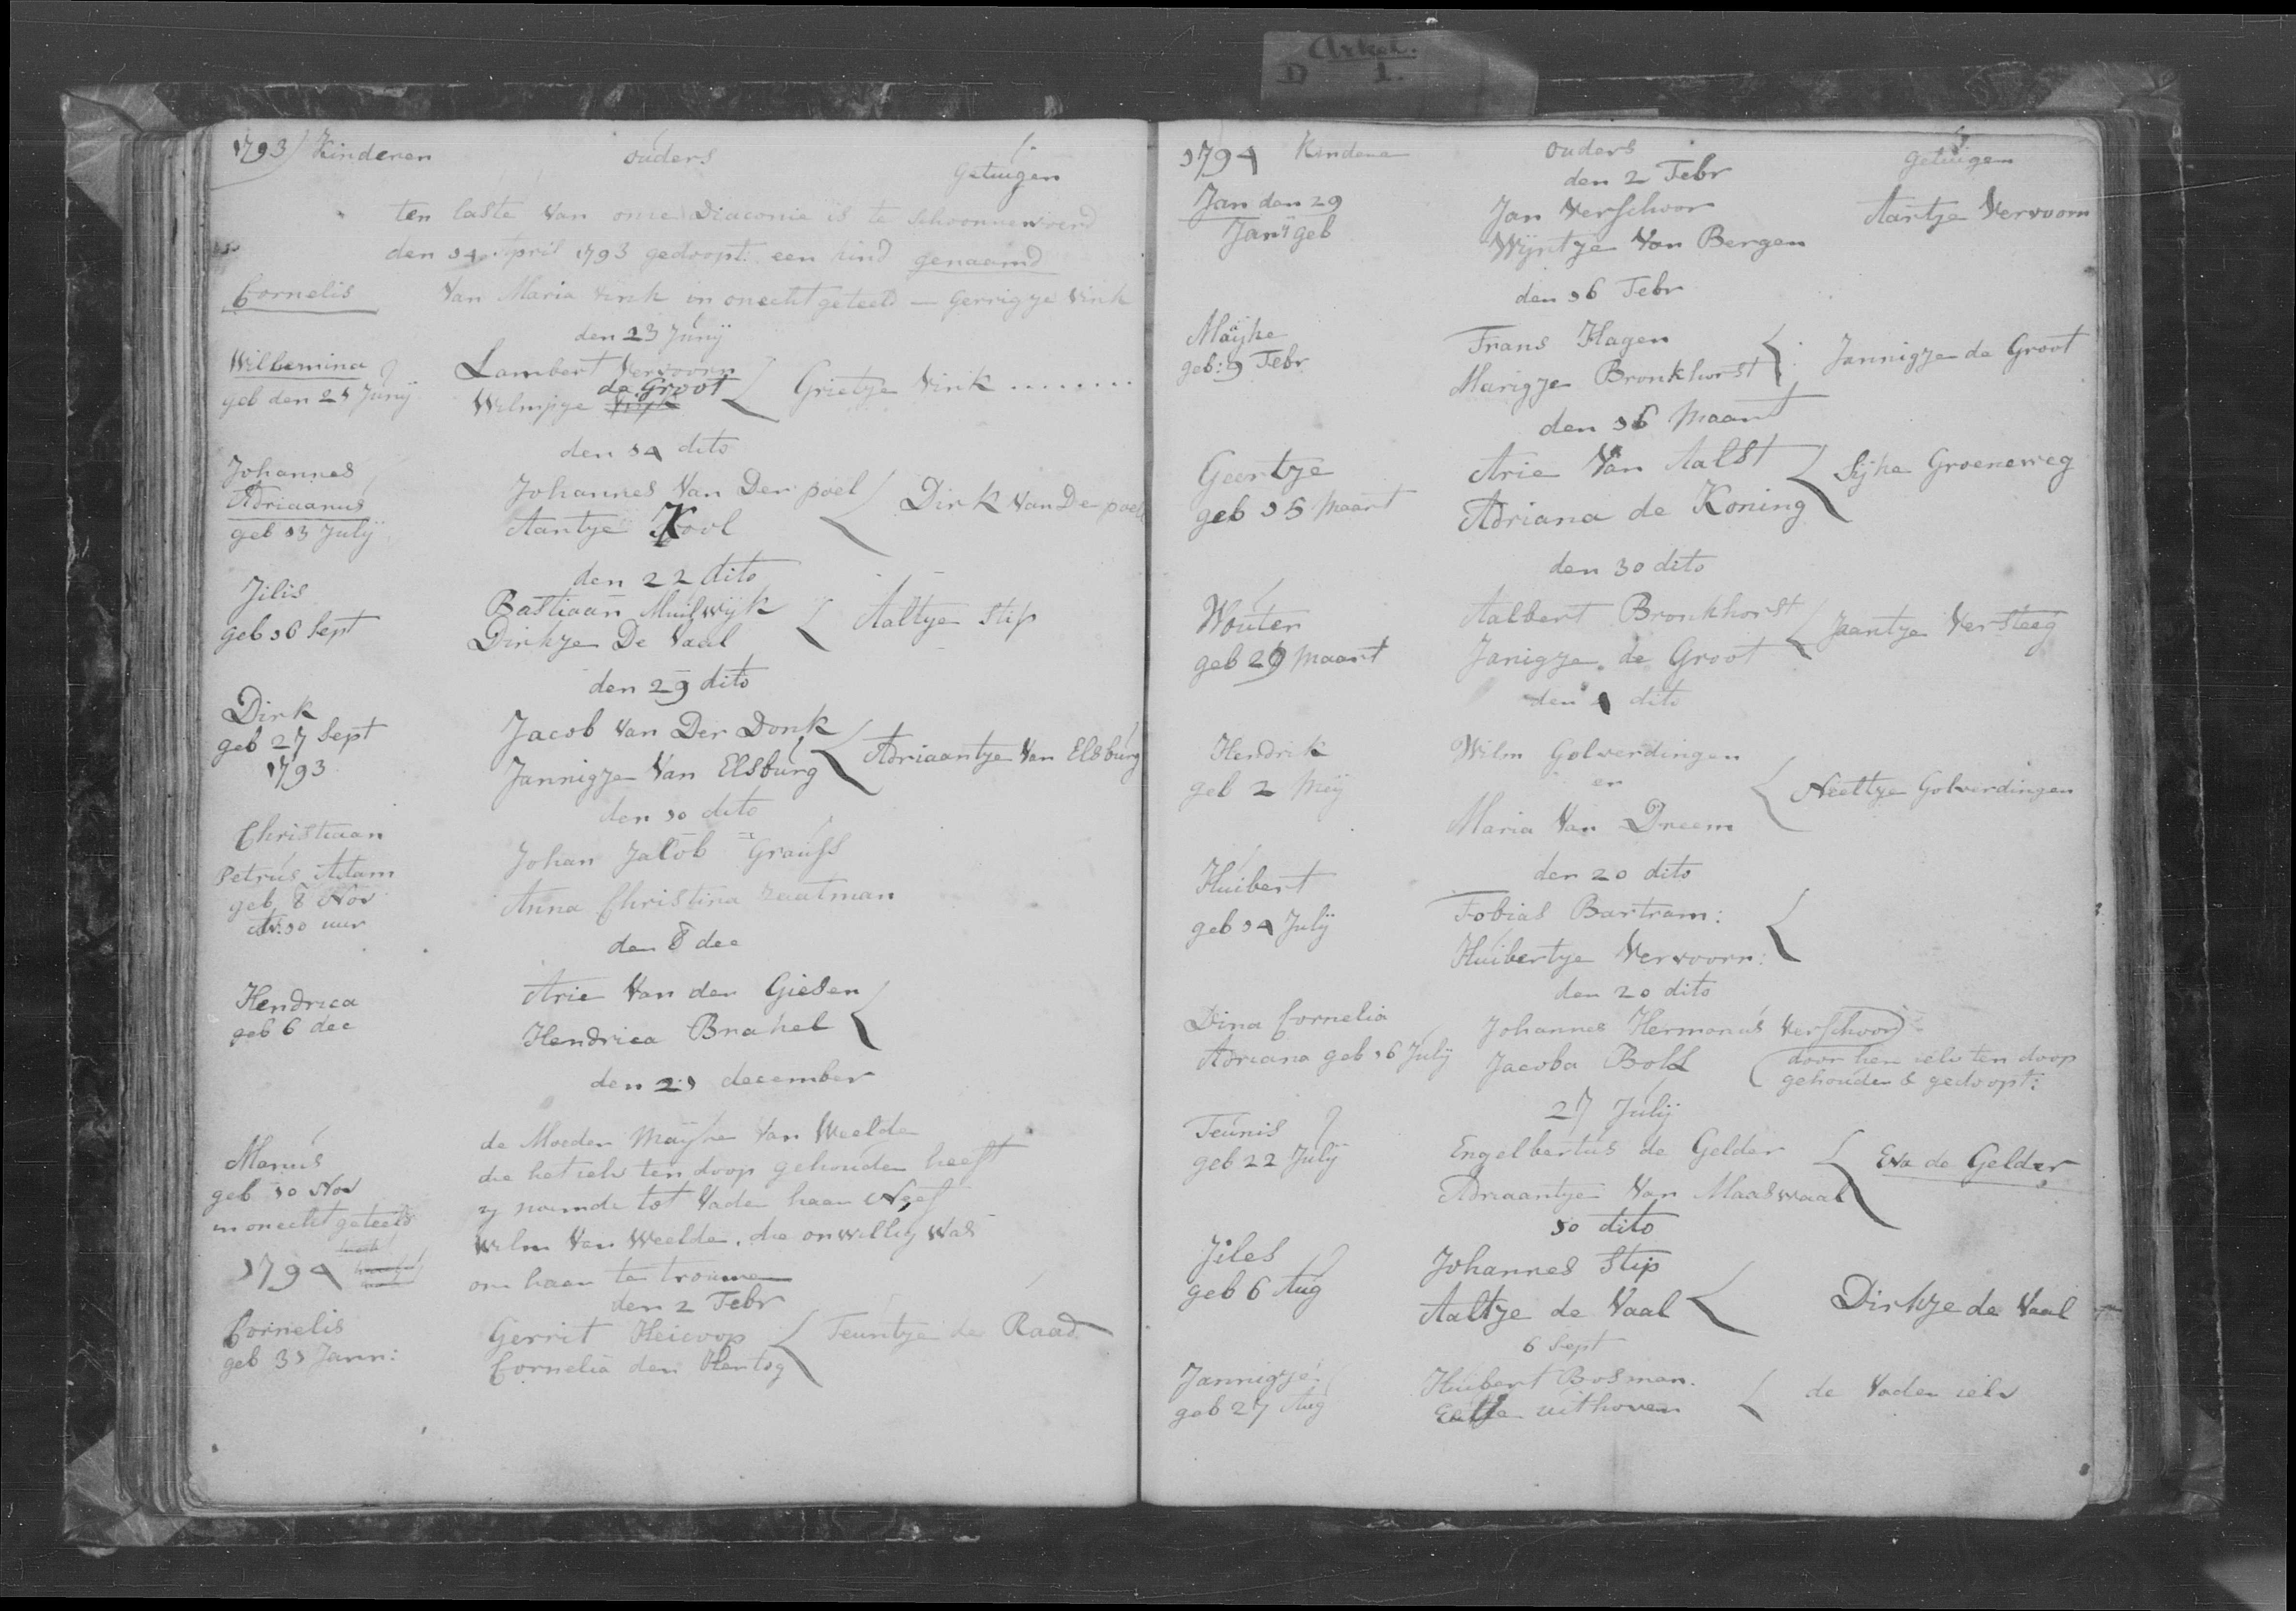 Arkel.
D 1.
1793) Kinderen ouders getuigen
ten laste van onze Diaconie is te Schoonrewoerd
den 14 April 1793 gedoopt een kind genaamd
Cornelis van Maria Vink in onecht geteeld — Gerrigje Vink
den 23 Junij
Wilhemina Lambert Vervoorn
geb den 21 Junij Wilmpje de Groot Grietje Vink ........
den 14 dito
Johannes
Adriaanus Johannes Van Der poel Dirk Van De poel
geb 13 Julij Aantje Kool
den 22 dito
Jilis Bastiaan Muilwijk Aaltje Stip
geb 16 Sept Dirkje De Vaal
den 29 dito
Dirk Jacob Van Der Donk
geb 27 Sept Jannigje Van Elsburg Adriaantje Van Elsburg
1793
den 10 dito
Christiaan
Petrus Adam Johan Jacob Grauss
geb 8 Nov Anna Christina zaatman
av: 10 uur
den 8 dec
Hendrica Arie Van den Giesen
geb 6 dec Hendrica Brakel
den 21 december
Marius de Moeder Maijke Van Weelde
geb 30 Nov die het zelv ten doop gehouden heeft
in onecht geteeld zy noemde tot Vader haar Neef
Wilm Van Weelde, die onwillig was
1794 om haar te trouwen
den 2 Febr
Cornelis Gerrit Heicoop Teuntje de Raad
geb 31 Jann: Cornelia den Hertog
1794 Kindere ouders getuigen
den 2 Febr
Jan den 29 Jan Verschoor Aartje Vervoorn
Janij geb Wijntje Van Bergen
den 16 Febr
Maijke Frans Hagen Jannigje de Groot
geb: 9 Febr Marigje Bronkhorst
den 16 Maart
Geertje Arie Van Aalst Sijke Groeneweg
geb 15 Maart Adriana de Koning
den 30 dito
Wouter Aalbert Bronkhorst Jaantje Versteeg
geb 29 Maart Janigje de Groot
den 4 dito
Hendrik Wilm Golverdingen
geb 2 Meij en Neeltje Golverdingen
Maria Van Dreem
den 20 dito
Huibert Tobias Bartram:
geb 14 Julij Huibertje Vervoorn:
den 20 dito
Dina Cornelia Johannes Hermanus Verschoor
Adriana geb 16 Julij Jacoba Boll door hen zelv ten doop
gehouden & gedoopt:
27 Julij
Teunis Engelbertus de Gelder Eva de Gelder
geb 22 Julij Adriaantje Van Maaswaal
10 dito
Jiles Johannes Stip
geb 6 Aug Aaltje de Vaal Dirkje de Vaal
6 Sept
Jannigje Huibert Bosman. de Vader zelv
geb 27 Aug uithoven